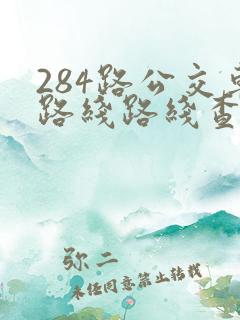 284路公交
路线路线查
弥二
未经同意禁止转载